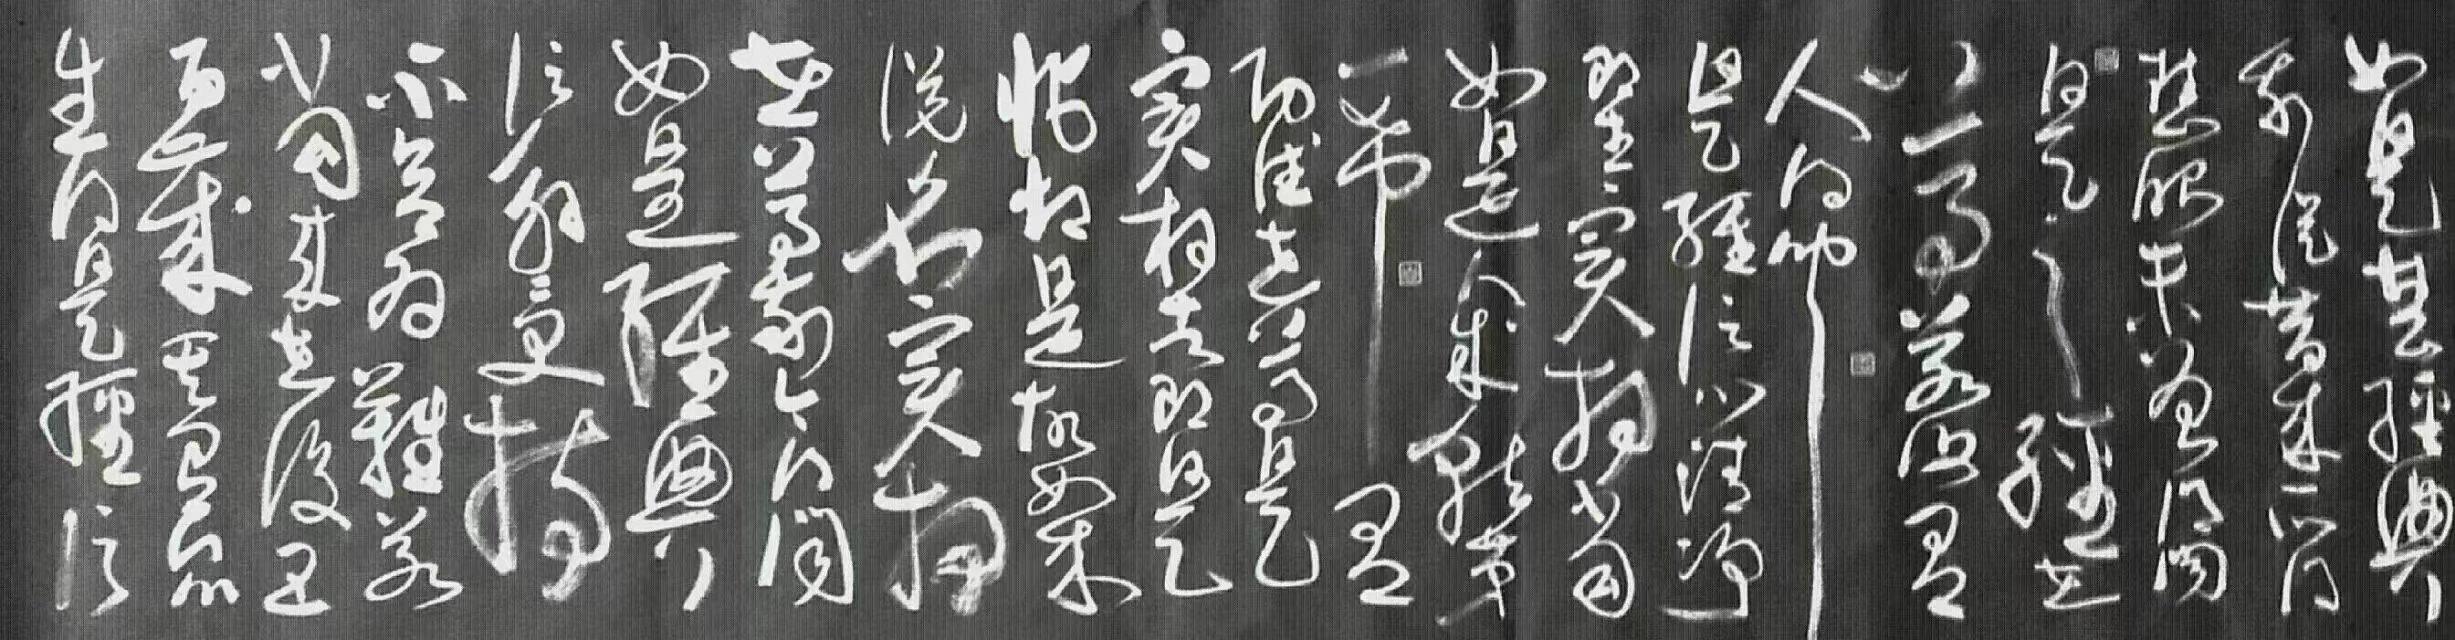 如是甚經典
我從昔來所得
慧眼未曾得聞
是之經世
尊若復有
人得聞
是經信心清淨
即生實相當
知是人成就第
一希有
功德世尊是
實相者即是
非相是故如來
說名實相
世尊我今得聞
如是經典
信解受持
不足為難若
當來世後五
百歲其有眾
生得是經信